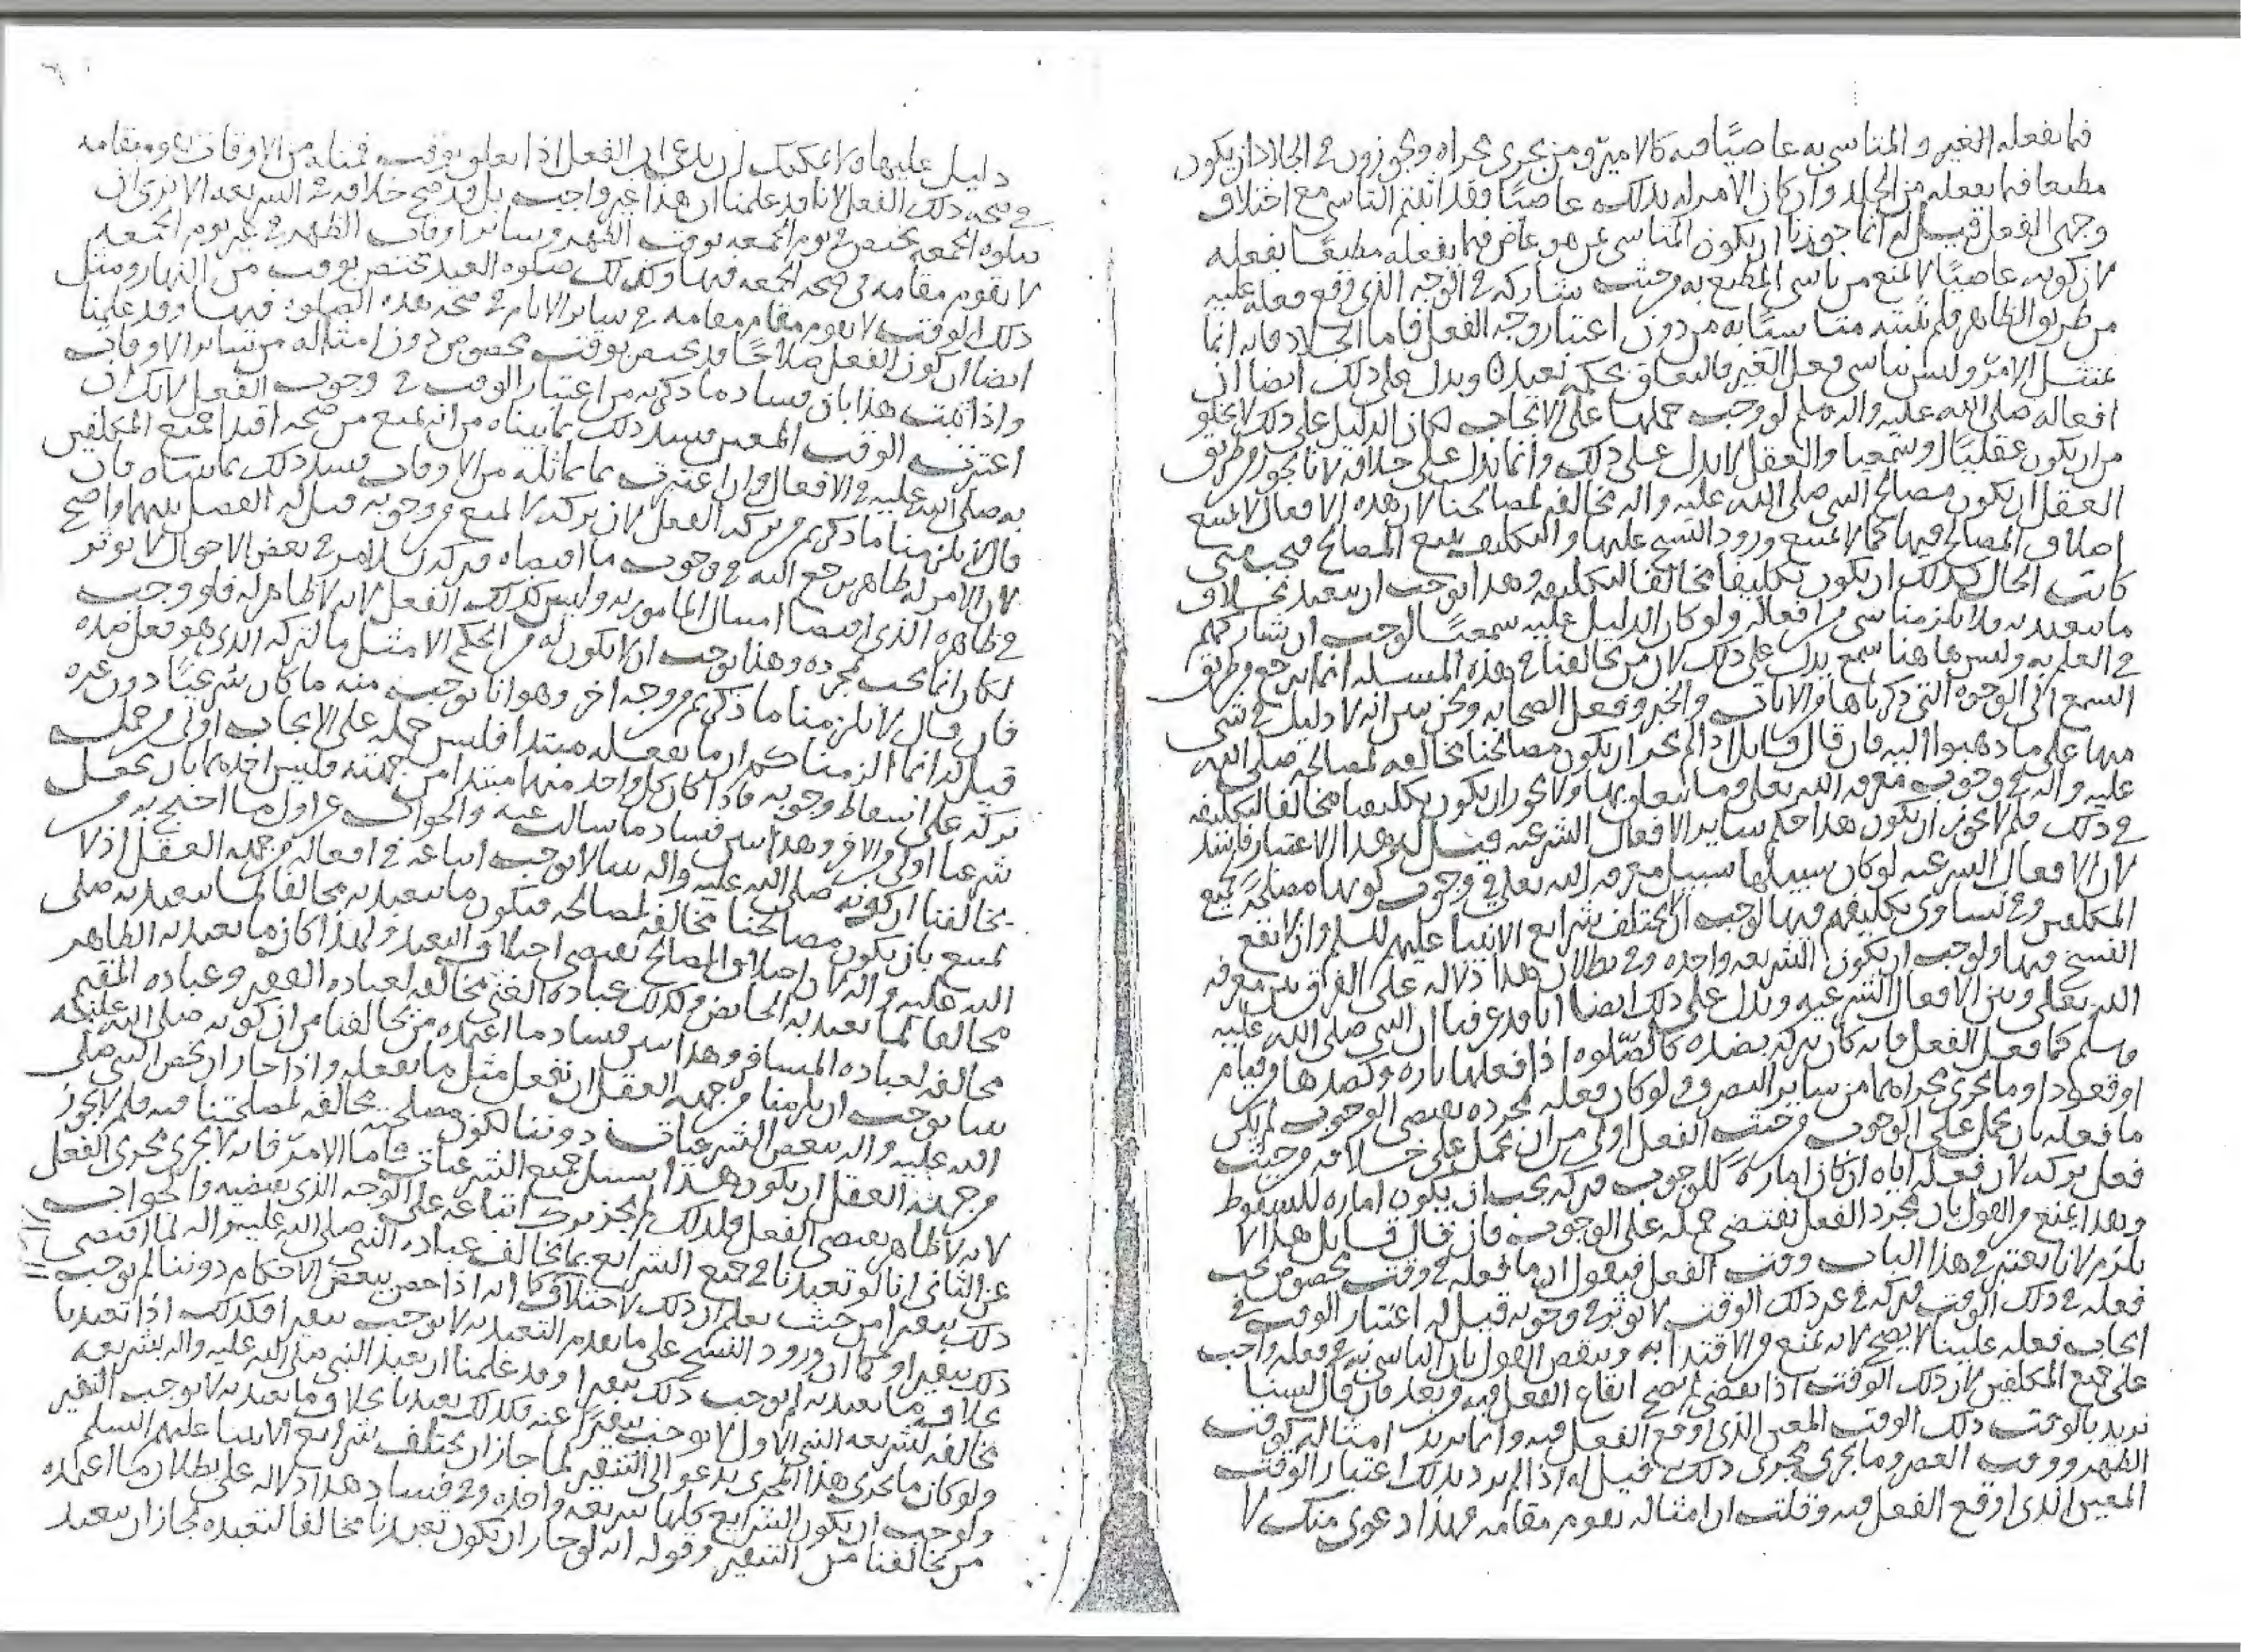 فيما يفعله الغير والمتاسي به عاصيًا فيه كالامير ومن يجري مجراه ويجوزون في الجلاد ان يكون
مطيعا فيما يفعله من الجلد وان كان الامر له بذلك عاصيًا فقد اثبتم التاسي مع اختلاف
وجهى الفعل قيل له انما جوزنا ان يكون المتاسي بمن هو عاص فيما يفعله مطيعًا بفعله
لان كونه عاصيًا لا يمنع من تاسي المطيع به من حيث شاركه في الوجه الذي وقع فعله عليه
من طريق الظاهر فلم نثبته متاسيًا به من دون اعتبار وجه الفعل فاما الجلاد فانه انما
يمتثل الامر وليس يتاسى بفعل الغير فالتعلق بحكم بعيد ويدل على ذلك ايضا ان
افعاله صلى الله عليه واله وسلم لو وجب حملها على الايجاب لكان الدليل على ذلك لا يخلو
من ان يكون عقليًا او سمعيا والعقل لا يدل على ذلك وانما يدل على خلافه لانا نجوز من طريق
العقل ان يكون مصالح النبي صلى الله عليه واله مخالفة لمصالحنا لان هذه الافعال لا يمتنع
اختلاف المصالح فيها كما لا يمتنع ورود النسخ عليها والتكليف يتبع المصالح فيجب متى
كانت الحال كذلك ان يكون تكليفنا مخالفا لتكليفه وهذا يوجب ان يتعبد بخلاف
ما نتعبد به فلا يلزمنا شي من افعاله ولو كان الدليل عليه سمعيًا لوجب ان نشاركهم
في العلم به وليس هاهنا سمع يدل على ذلك لان من يخالفنا في هذه المسئلة انما يرجع من طريق
السمع الى الوجوه التي ذكرناها من الايات والخبر وفعل الصحابه ونحن نبين انه لا دليل في شي
منها على ما ذهبوا اليه فان قال قايل اذا لم يجز ان يكون مصالحنا مخالفة لمصالحه صلى الله
عليه واله في وجوب معرفة الله تعالى وما يتعلق بها ولا يجوز ان يكون تكليفنا مخالفا لتكليفه
في ذلك فلم لا يجوز ان يكون هذا حكم ساير الافعال الشرعيه قيل له هذا الاعتبار فاسد
لان الافعال الشرعيه لو كان سبيلها سبيل معرفة الله تعالى في وجوب كونها مصلحة لجميع
المكلفين وفي تساوى تكليفهم فيها لوجب الا يختلف شرايع الانبيا عليهم السلم وان لا يقع
النسخ فيها ولوجب ان يكون الشريعه واحده وفي بطلان هذا دلاله على الفرق بين معرفة
الله تعالى وبين الافعال الشرعيه ويدل على ذلك ايضا انا قد عرفنا ان النبي صلى الله عليه
وسلم كما فعل الفعل فانه كان يتركه بضده كالصلوه اذا فعلها تاره وكضدها من قيام
او قعود او ما يجري مجراهما من ساير التصرف ولو كان فعله بمجرده يقتضي الوجوب لم يكن
ما فعله بان يحمل على الوجوب من حيث الفعل اولى من ان يحمل على خلافه من حيث
فعل تركه لان فعله اياه ان كان امارةً للوجوب فتركه يجب ان يكون اماره للسقوط
وهذا يمنع من القول بان مجرد الفعل يقتضي حمله على الوجوب فان قال قايل هذا لا
يلزم لانا نعتبر في هذا الباب وقت الفعل فنقول ان ما فعله في وقت مخصوص يجب
فعله في ذلك الوقت فتركه في غير ذلك الوقت لا يؤثر في وجوبه قيل له اعتبار الوقت في
ايجاب فعله علينا لا يصح لانه يمنع من الاقتدا به وينقض القول بان التاسي به في فعله واجب
على جميع المكلفين لان ذلك الوقت اذا تقضى لم يصح ايقاع الفعل فيه وبعد فان قال لسنا
نريد بالوقت ذلك الوقت المعين الذي اوقع الفعل فيه وانما نريد امثاله كوقت
الظهر ووقت العصر وما يجري مجرى ذلك قيل له اذا لم يرد بذلك اعتبار الوقت
المعين الذي اوقع الفعل فيه وقلت ان امثاله يقوم مقامه فهذا دعوى منك لا
دليل عليها ولا يمكنك ان تدعي ان الفعل اذا تعلق بوقت فمثله من الاوقات يقوم مقامه
في صحة ذلك الفعل لانا قد علمنا ان هذا غير واجب بل قد صح خلافه في الشريعه الا ترى ان
صلوة الجمعه تختص في يوم الجمعه بوقت الظهر وساير اوقات الظهر في غير يوم الجمعه
لا يقوم مقامه في صحة الجمعه فيها وكذلك صلوة العيد تختص بوقت من النهار ومثل
ذلك الوقت لا يقوم مقامه في ساير الايام في صحة هذه الصلوة فيها وقد علمنا
ايضا ان كون الفعل صلاحًا قد يختص بوقت مخصوص دون امثاله من ساير الاوقات
واذا ثبت هذا بان فساد ما ذكرته من اعتبار الوقت في وجوب الفعل لانك ان
اعتبرت الوقت المعين فسد ذلك بما بيناه من انه يمنع من صحة اقتدا جميع المكلفين
به صلى الله عليه في الافعال وان اعتبرت بما يماثله من الاوقات فسد ذلك بما بيناه فان
قال يلزمنا ما ذكرتم من ترك الفعل لان تركه لا يمنع من وجوبه قيل له الفصل بينهما واضح
لان الامر له ظاهر يرجع اليه في وجوب ما اقتضاه فتركه للامر في بعض الاحوال لا يؤثر
في ظاهره الذي اقتضا امتثال المامور به وليس كذلك الفعل لانه لا ظاهر له فلو وجب
لكان انما يجب بمجرده وهذا يوجب ان لا يكون له من الحكم الا مثل ما لتركه الذي هو فعل ضده
فان قال لا يلزمنا ما ذكرتم من وجه اخر وهو انا نوجب منه ما كان شرعيًا دون غيره
قيل له انما الزمناكم ان ما يفعله مبتدأ فليس حمله على الايجاب اولى من حمل
تركه على اسقاط وجوبه فاذا كان كل واحد منهما مبتدا من جهته فليس احدهما بان يجعل
شرعيا اولى من الاخر وهذا يبين فساد ما سالت عنه والجواب عن اول ما احتج به من
يخالفنا ان كونه صلى الله عليه واله نبيا لا يوجب اتباعه في افعاله من جهة العقل اذ لا
يمتنع بان يكون مصالحنا مخالفة لمصالحه فيكون ما نتعبد به مخالفا لما يتعبد به صلى
الله عليه واله لان اختلاف المصالح يقتضي اختلاف التعبد ولهذا كان ما تعبد به الطاهر
مخالفا لما تعبد به الحايض وكذلك عباده الغني مخالفة لعباده الفقير وعباده المقيم
مخالفه لعباده المسافر وهذا يبين فساد ما اعتمده من يخالفنا من ان كونه صلى الله عليه
نبيا يوجب ان يلزمنا من جهة العقل ان نفعل مثل ما يفعله واذا جاز ان يخص النبي صلى
الله عليه واله ببعض الشرعيات دوننا لكون مصلحته مخالفة لمصلحتنا فيه فلم لا يجوز
من جهة العقل ان يكون هذا سبيل جميع الشرعيات فاما الامر فانه لا يجري مجرى الفعل
لانه لا ظاهر يقتضي الفعل فلذلك لم يجز ترك اتباعه على الوجه الذي يقتضيه والجواب
عن الثاني انا لو تعبدنا في جميع الشرايع بما يخالف عباده النبي صلى الله عليه واله لما اقتضى
ذلك تنفيرا من حيث نعلم ان ذلك لاختلاف كما انه اذا خص ببعض الاحكام دوننا لم يوجب
ذلك تنفيرا وكما ان ورود النسخ على ما تقدم التعبد به لا يوجب تنفيرا فكذلك اذا تعبدنا
بخلاف ما تعبد به لم يوجب ذلك تنفيرا وقد علمنا ان تعبد النبي صلى الله عليه واله بشريعه
مخالفه لشريعه النبي الاول لا يوجب تنفيرًا عنه فكذلك تعبدنا بخلاف ما تعبد به لا يوجب التنفير
ولو كان ما يجري هذا المجرى يدعو الى التنفير لما جاز ان يختلف شرايع الانبيا عليهم السلم
ولوجب ان يكون الشرايع كلها شريعه واحده وفي فساد هذا دلاله على بطلان ما اعتمده
من يخالفنا من التنفير وقوله انه لو جاز ان يكون تعبدنا مخالفا لتعبده لجاز ان يتعبد